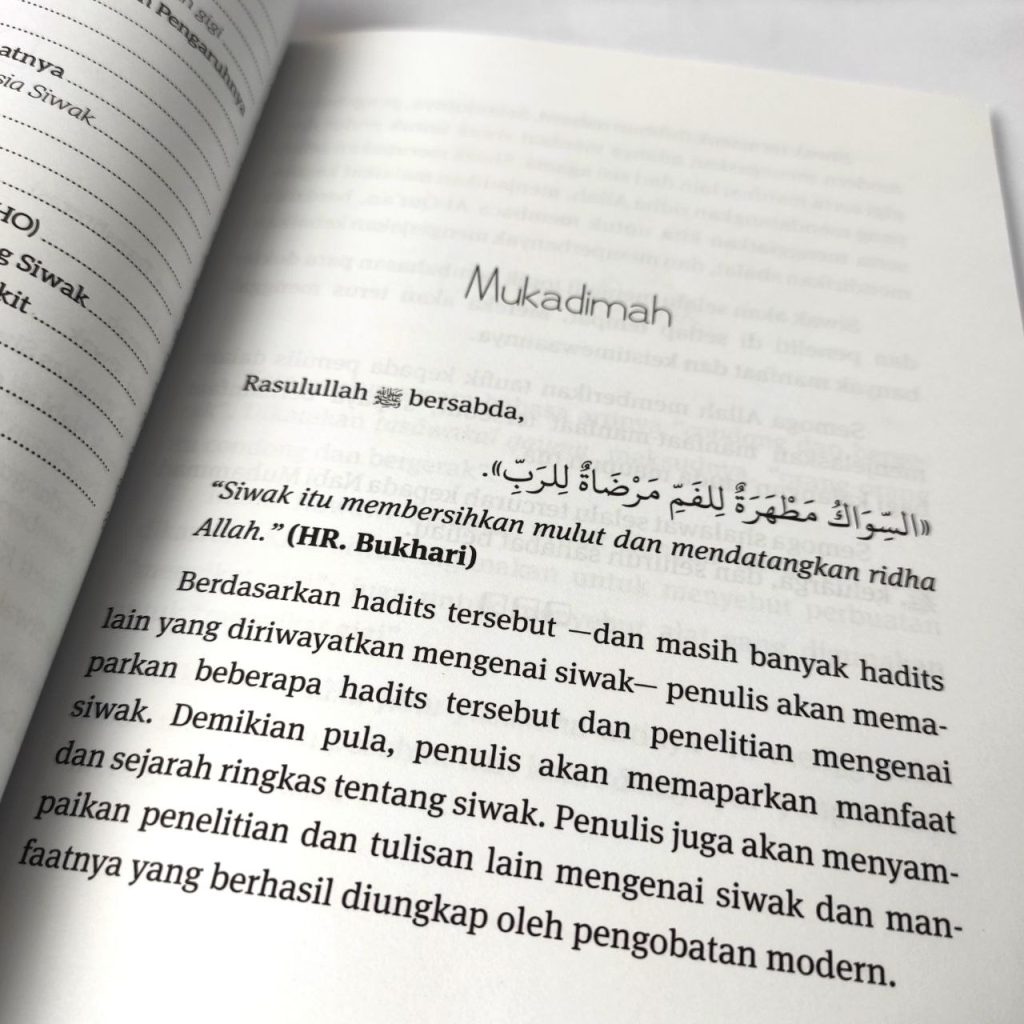 gigi
n Pengaruhnya
atnya
sia Siwak
HO)
g Siwak
kit
Mukadimah
Rasulullah ﷺ bersabda,
«السِّوَاكُ مَطْهَرَةٌ لِلْفَمِّ مَرْضَاةٌ لِلرَبِّ».
“Siwak itu membersihkan mulut dan mendatangkan ridha
Allah.” (HR. Bukhari)
Berdasarkan hadits tersebut —dan masih banyak hadits
lain yang diriwayatkan mengenai siwak— penulis akan mema-
parkan beberapa hadits tersebut dan penelitian mengenai
siwak. Demikian pula, penulis akan memaparkan manfaat
dan sejarah ringkas tentang siwak. Penulis juga akan menyam-
paikan penelitian dan tulisan lain mengenai siwak dan man-
faatnya yang berhasil diungkap oleh pengobatan modern.